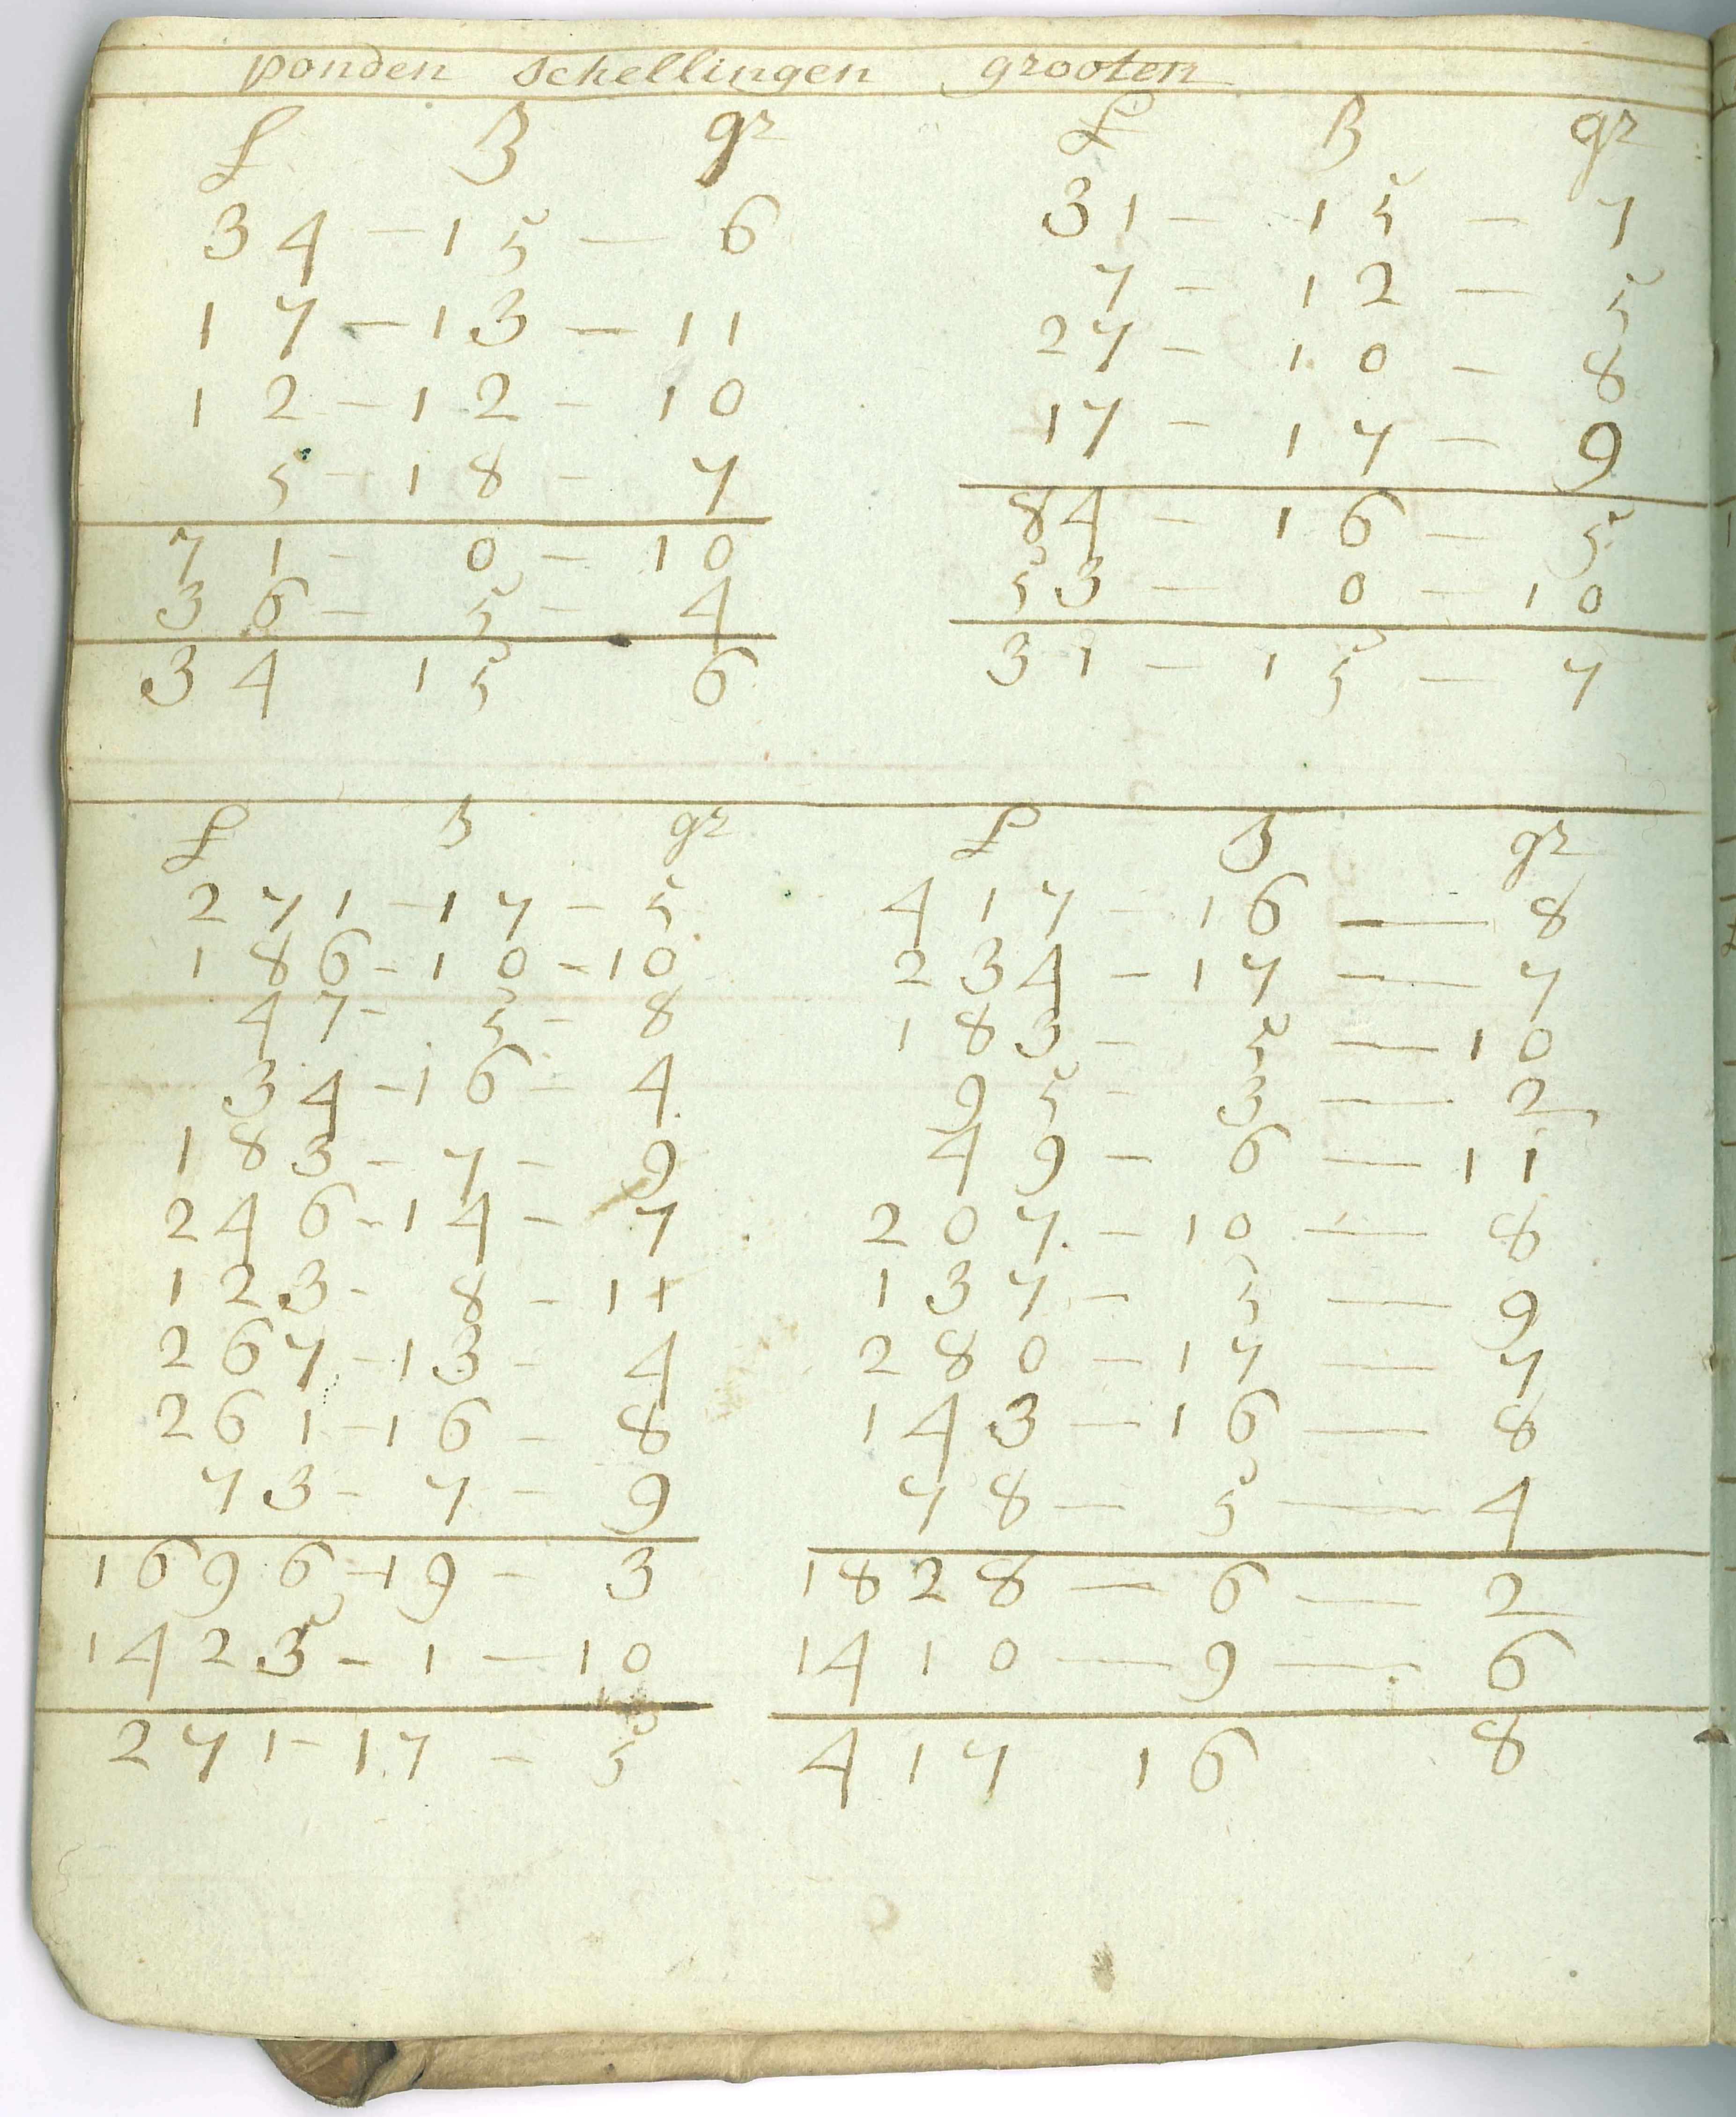 ponden schellingen grooten
£ ß gr
34 - 15 - 6
17 - 13 - 11
12 - 12 - 10
5 - 18 - 7
71 - 0 - 10
36 - 5 - 4
34 15 6
£ ß gr
31 - 15 - 7
7 - 12 - 5
27 - 10 - 8
17 - 17 - 9
84 - 16 - 5
53 - 0 - 10
31 - 15 - 7
£ ß gr
271 - 17 - 5
186 - 10 - 10
47 - 5 - 8
34 - 16 - 4
183 - 7 - 9
246 - 14 - 7
123 - 8 - 11
267 - 13 - 4
261 - 16 - 8
73 - 7 - 9
1696 - 19 - 3
1425 - 1 - 10
271 - 17 - 5
£ ß gr
417 - 16 - 8
234 - 17 - 7
183 - 5 - 10
95 - 3 - 2
49 - 6 - 11
207 - 10 - 8
137 - 5 - 9
280 - 17 - 7
143 - 16 - 8
78 - 5 - 4
1828 - 6 - 2
1410 - 9 - 6
417 16 8